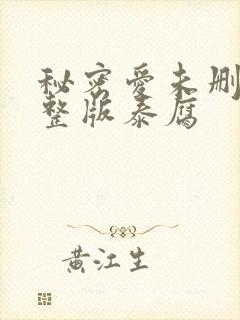 秘密爱未删
整版泰腐
黄江生